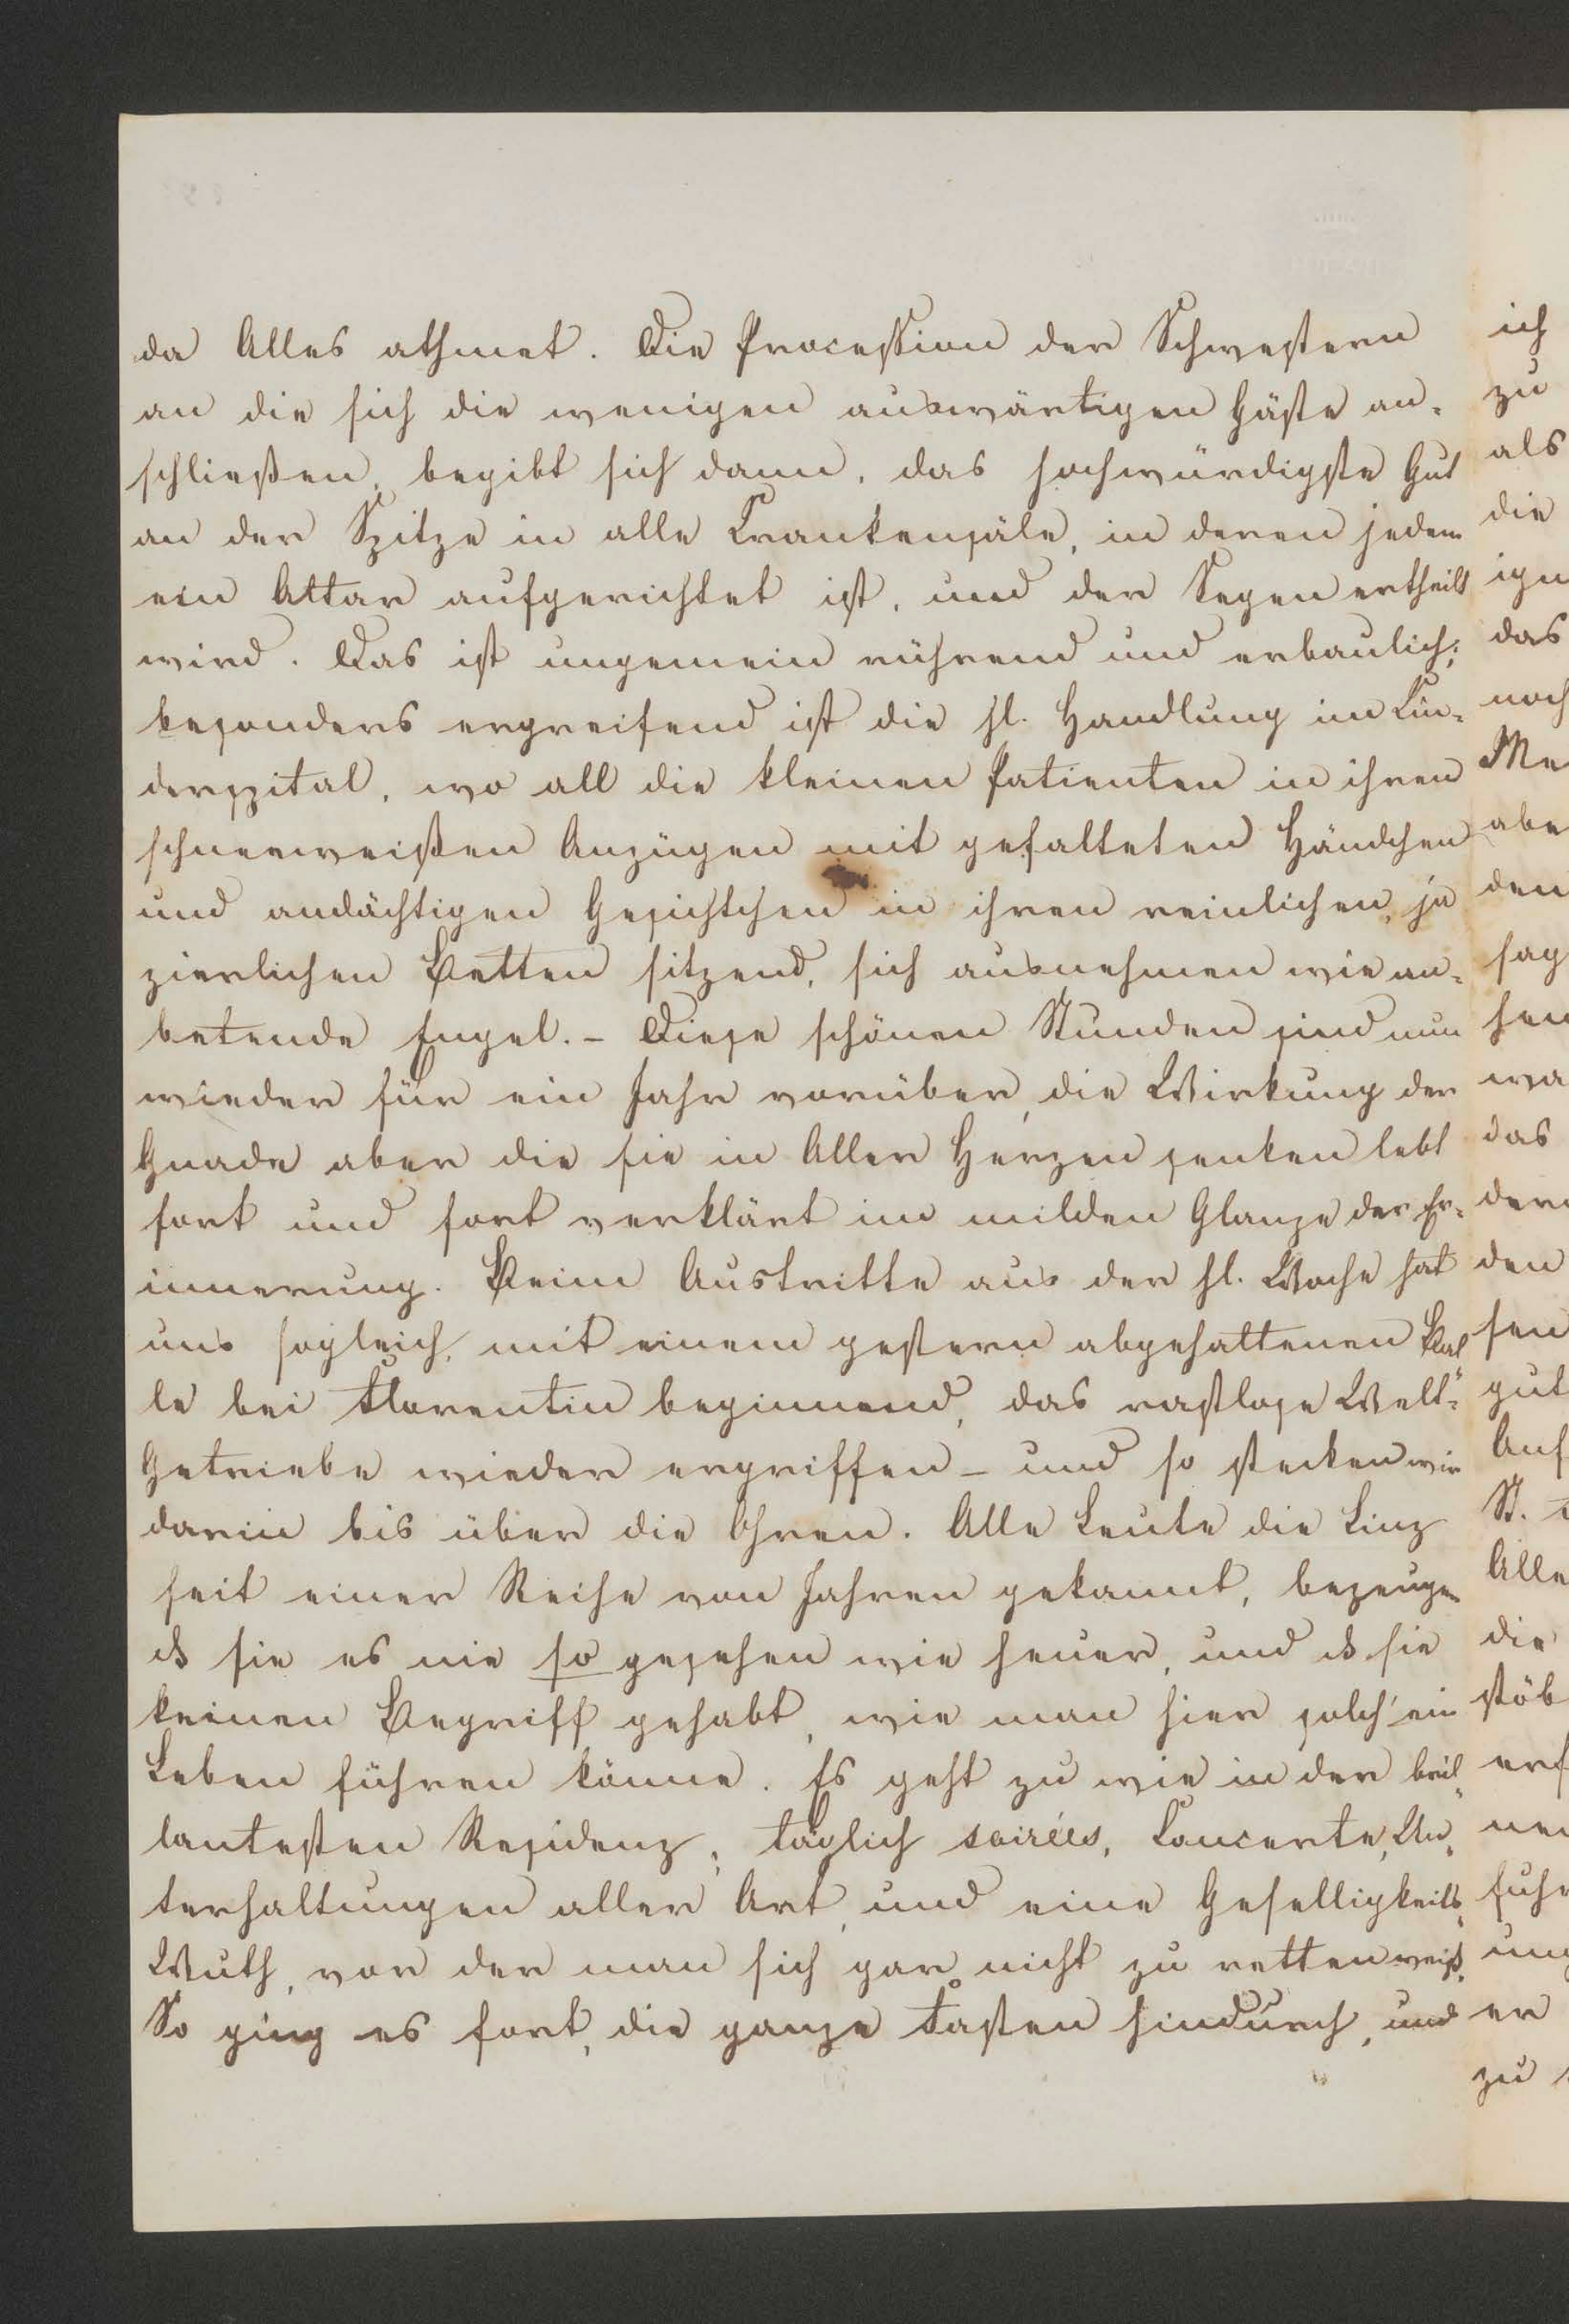 da Alles athmet. Die Procession der Schwestern
an die sich die wenigen auswärtigen Gäste an-
schließen, begibt sich dann, das hochwürdigste Gut
an der Spitze in alle Krankensäle, in deren jedem
ein Altar aufgerichtet ist, und der Segen ertheilt
wird. Das ist ungemein rührend und erbaulich;
besonders ergreifend ist die hl. Handlung im Kin-
derspital, wo all die kleinen Patienten in ihren
schneeweißen Anzügen mit gefalteten Händchen
und andächtigen Gesichtchen in ihren reinlichen, ja
zierlichen Betten sitzend, sich ausnehmen wie an-
betende Engel. – Diese schönen Stunden sind nun
wieder für ein Jahr vorüber, die Wirkung der
Gnade aber die sie in Aller Herzen senken lebt
fort und fort verklärt im milden Glanze der Er-
innerung. Beim Austritte aus der hl. Woche hat
uns sogleich, mit einem gestern abgehaltenen Bal
le bei Florentin beginnend, das rastlose Welt-
Getriebe wieder ergriffen – und so stecken wir
darin bis über die Ohren. Alle Leute die Linz
seit einer Reihe von Jahren gekannt, bezeugen
ds sie es nie so gesehen wie heuer, und ds sie
keinen Begriff gehabt, wie man hier solch' ein
Leben führen könne. Es geht zu wie in der bril-
lantesten Residenz, täglich soirées, Concerte, Un-
terhaltungen aller Art, und eine Geselligkeits-
Wuth, vor der man sich gar nicht zu retten weiß.
So ging es fort, die ganze Fasten hindurch, und
ich
zu
als
die
ign
das
noch
Me
abe
den
sag
hen
wa
das
der
den
sen
gut
Auf
St.
Alle
die
stöb
erf
nen
fuhr
ung
er
zu